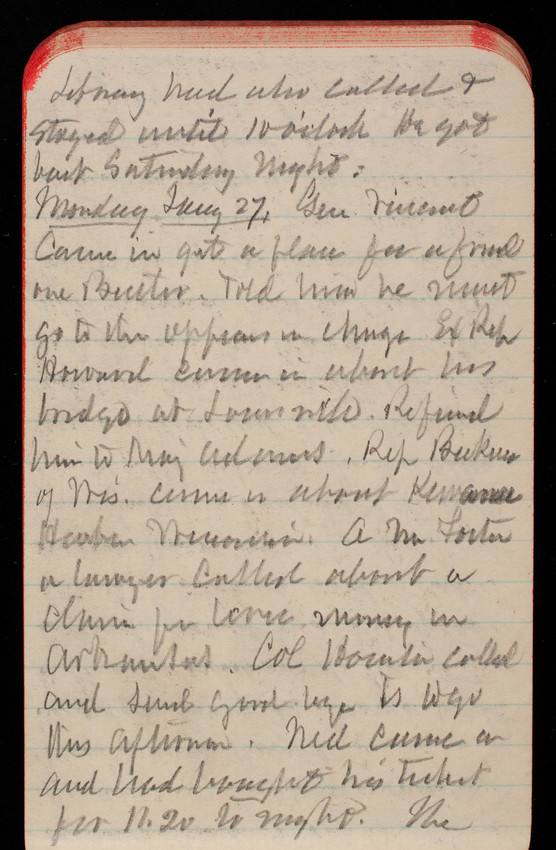 Library Ned who called &
stayed until 10 o'clock He got
back Saturday night:
Monday Jany 27, Gen Vincent
Came in get a place for a friend
one Butler. Told him he must
go to the officers in charge Ex Rep
Howard came in about his
bridge at Louisville. Referred
him to Maj Adams. Rep
of Wis. came in about Kewaunee
Harbor Wisconsin. A Mr Foster
a lawyer called about a
claim for levee money in
Arkansas. Col called
and said good bye to
this afternoon. Ned came in
and had bought his ticket
for 11.20 to night. The